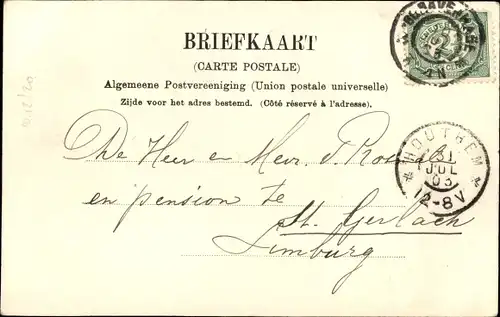 BRIEFKAART
(CARTE POSTALE)
Algemeene Postvereeniging (Union postale universelle)
Zijde voor het adres bestemd. (Côté réservé à l'adresse).
De Heer en Mevr. d.
en pension te
St. Gerlach
Limburg
HOUTHEM
31
JUL
03
12-8V